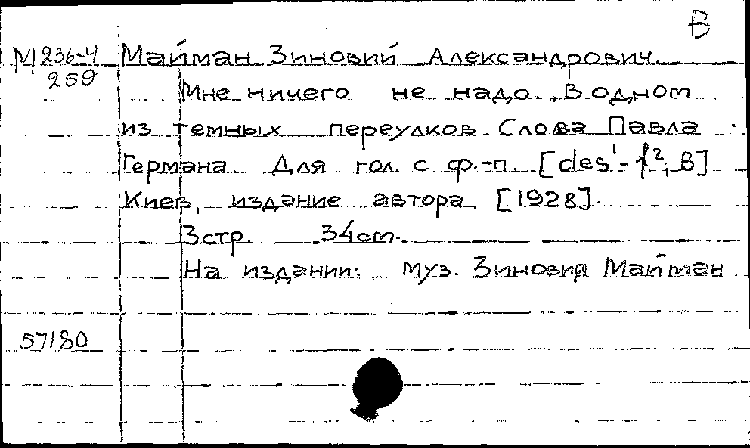 В
М 236-4 Майман Зиновий Александрович.
259 Мне ничего не надо. В одном
из темных переулков. Слова Павла
Германа. Для гол. с ф.-п. [des¹-f², В]
Киев, издание автора [1928].
3 стр. 34 cm.
На издании: муз. Зиновия Майман
57180